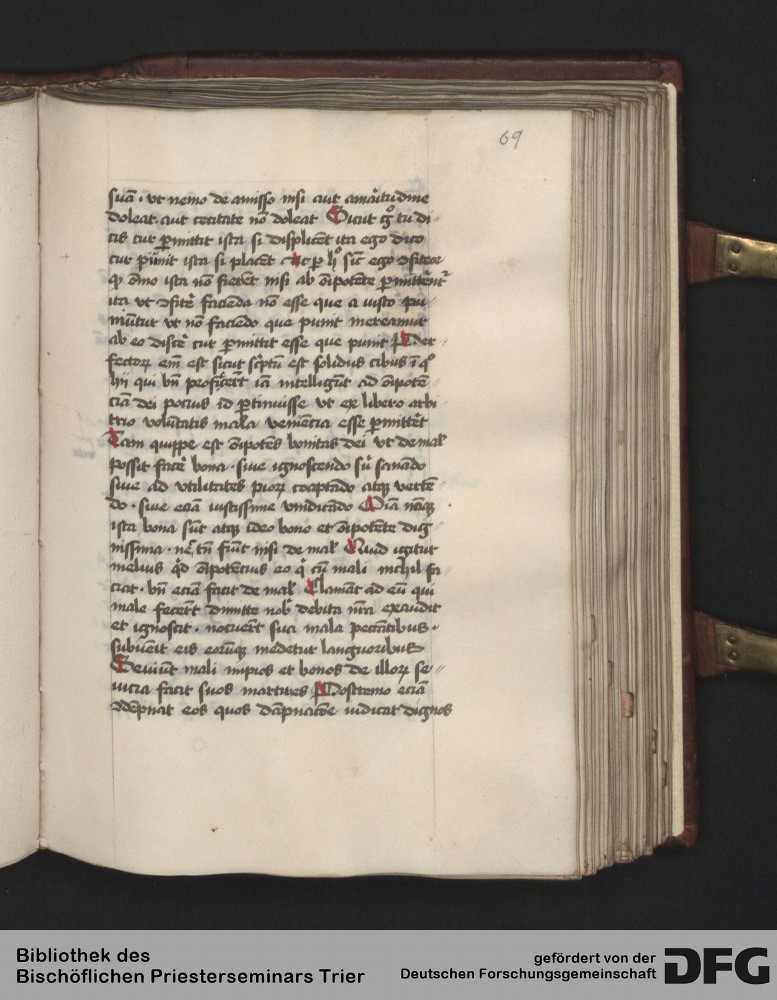 69
suā · ut nemo de amisso nisi aut amaritudine
doleat · aut cecitate nō doleat Sicut gͦ tu di
cis cur ꝑmittit ista si displicēt ita ego dico
cur punit ista si placēt ac ꝑ h sic ego
qꝫ oīno ista nō fierēt nisi ab oīpotēte ꝑmitterētʳ
ita ut facienda nō esse que a iusto pu
niūtur ut nō faciendo que punit mereamur
ab eo discere cur ꝑmittit esse que punit Per
fectoꝝ em̄ est sicut scptū est solidus cibus ī qͦ
hii qui bn̄ profecerūt iā intelligūt ad oīpotē
ciā dei pocius id ꝑtinuisse ut ex libero arbi
trio volūtatis mala veniēcia esse ꝑmitteret
Tam quippe est oīpotēs bonitas dei ut de mał
possit facere bona · sive ignoscendo siū sanādo
sive ad utilitates pioꝝ coaptādo atqꝫ verte
do · sive eciā iustissime vindicādo Oīa nāqꝫ
ista bona sūt atqꝫ ideo bono et oīpotēte dig
nissima · nec tn̄ fiūt nisi de mał Quid igitur
melius qd oīpotēcius eo qͥ cū mali nichil fa
ciat · bn̄ eciā facit de mał Clamāt ad eū qui
male fecerūt dimitte nob debita nr̄a exaudit
et ignoscit · nocuerūt sua mala peccātibus ·
subvenit eis eorūqꝫ medetur languoribus
Seviūt mali impios et bonos de illoꝝ se
vicia facit suos martires Postremo eciā
dāpnat eos quos dāpnacōe iudicat dignos
Bibliothek des
Bischöflichen Priesterseminars Trier
gefördert von der
Deutschen Forschungsgemeinschaft
DFG